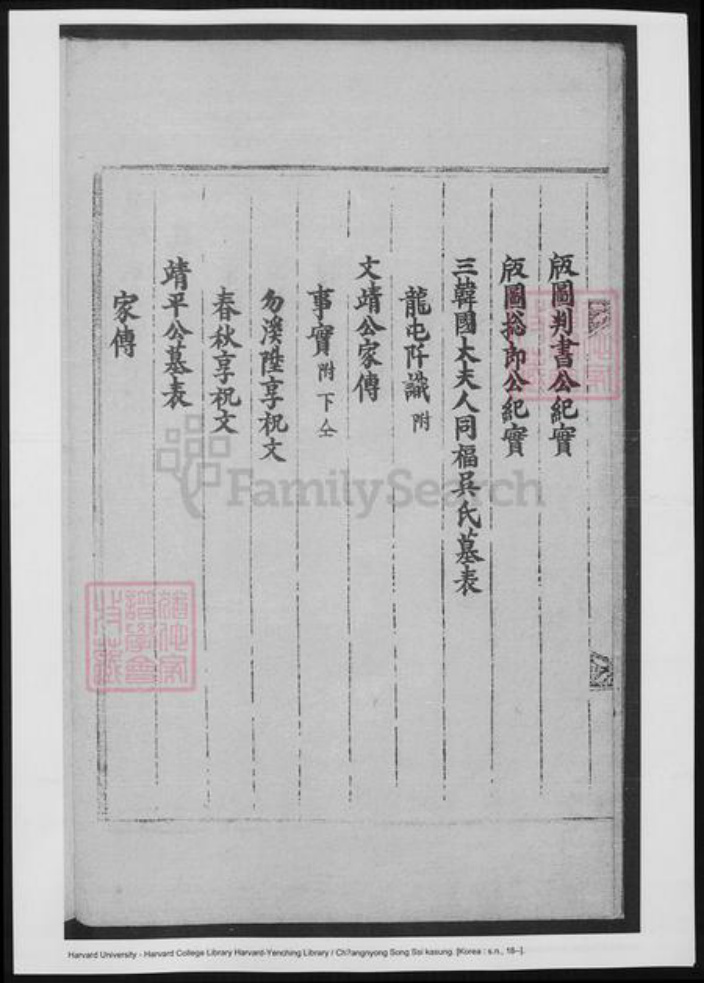 版圖判書公紀實
版圖摠郎公紀實
三韓國大夫人同福吳氏墓表
龍屯阡識 附
文靖公家傳
事實 附 下仝
勿溪陞享祝文
春秋享祝文
靖平公墓表
家傳
FamilySearch
Harvard University - Harvard College Library Harvard-Yenching Library / Ch?angnyong Song Ssi kasung. [Korea : s.n., 18--].